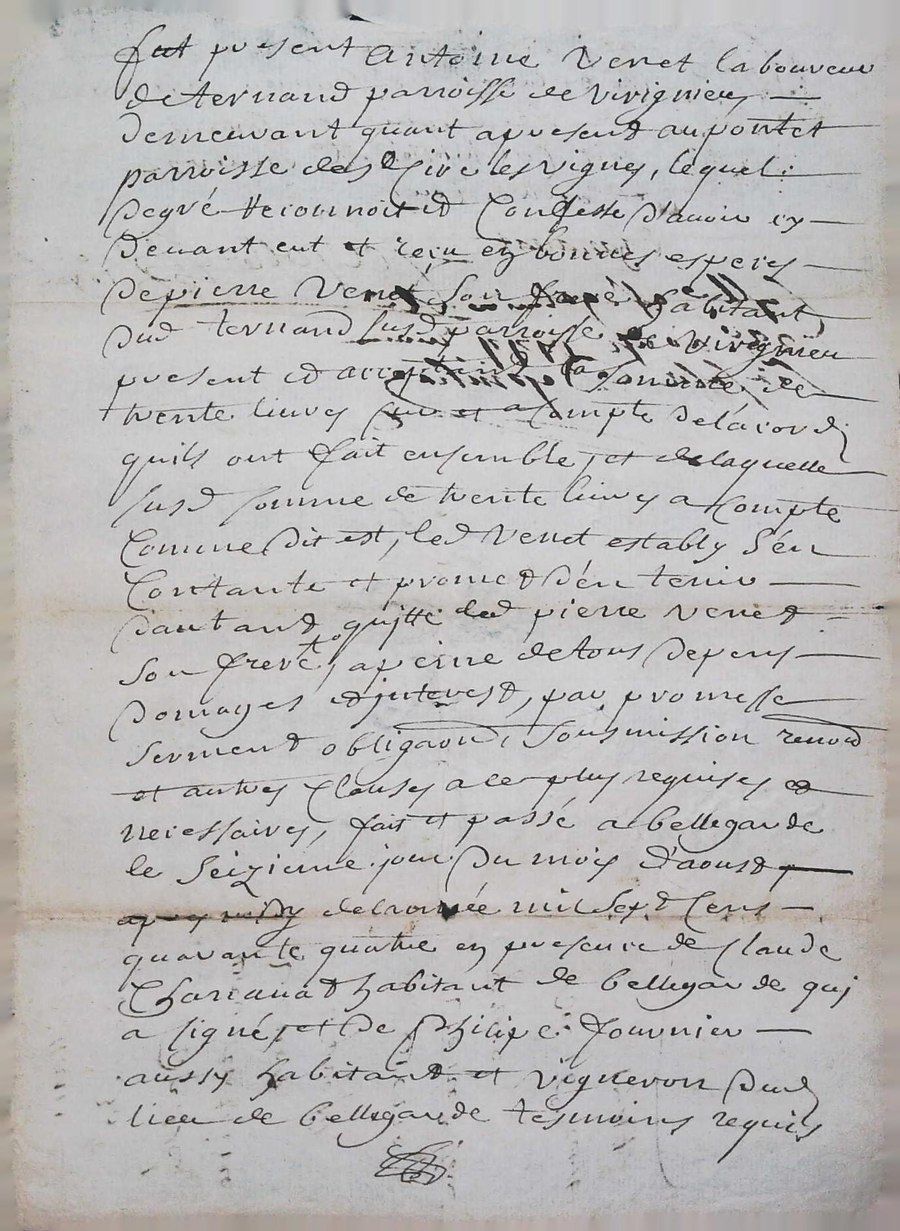 fut present Antoine Venet laboureur
de ternand parroisse de Virignieu
demeurant quant apresent au pontet
parroisse de St Cire les vignes, lequel
degré Reconnoit et Confesse d'avoir cy
devant eut et reçu en bonnes especes
de pierre Venet son frere habitant
dud ternand susd parroisse de Virignieu
present et acceptant la somme de
trente livres sur et a compte de lácord
quils ont fait ensemble, et de laquelle
susd somme de trente livres a compte
comme dit est, led Venet estably s'én
Contante et promet d'én tenir
dautant quitte led pierre Venet
son frere, apeine de tous depens
domages et interest, par promesse
serment obligaond, sousmission renond
et autres Clauses a ce plus requises et
necessaires, fait et passé a bellegarde
le seizieme jour du mois d'aoust
apres midy de lannée mil sept Cens
quarante quatre en presence de Claude
Charana habitant de bellegarde qui
a signé, et de philipe fournier
aussy habitant et vigneron dud
lieu de bellegarde tesmoins requis